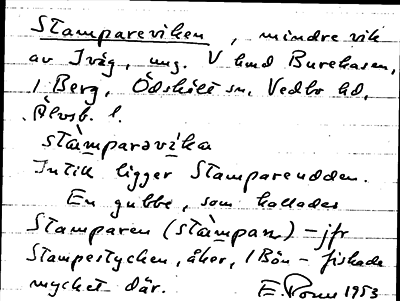 Stampareviken, mindre vik
av Ivåg, ung. V Burehasen,
1 Berg, Ödskölt sn, Vedbo hd,
Älvsb. l.
stàmparəvika
Intill ligger Stampareudden.
En gubbe, som kallades
Stamparen (stàmparn) – jfr
Stampestycken, åker, 1 Bön – fiskade
mycket där. 1953